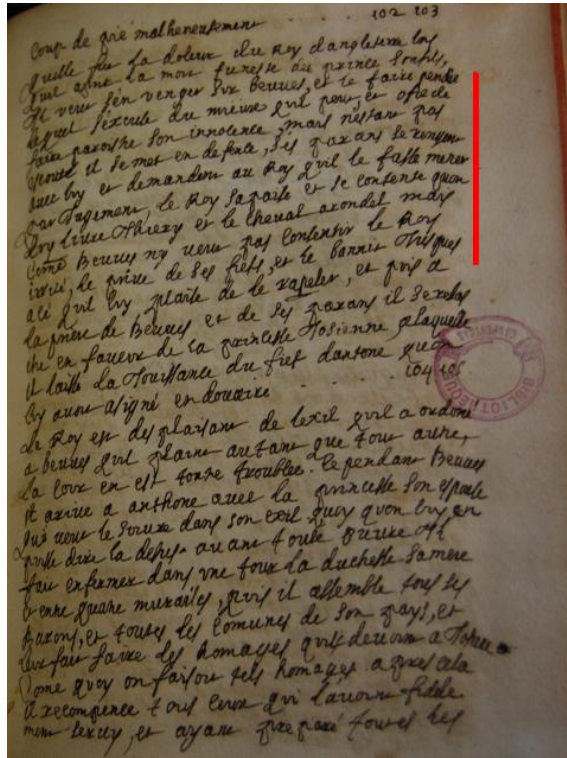 Coup de pié malheureusement ... 102 103
Quelle fut la doleur du Roy dangleterre lors
quil aprit la mort funeste du prince son fils,
Il veut sen venger sur beuves, et le faire pendre
lequel sexcuse du mieux quil peut, et ofre de
faire paroistre son innolence, mais nestant pas
escouté il se met en defence, ses parans se rengent
avec luy et demandent au Roy quil le fasse mener
par Jugement, le Roy sapaise et se contente quon
luy livre Thierry et le cheval arondel mais
come Beuves ny veut pas consentir le Roy
irrité, le prive de ses fiefs, et le bannit Jusques
a cé quil luy plaise de le rapeler, et puis a
la priere de Beuves et de ses parans il se relas
che en faveur de la princesse Josienne, alaquelle
il laisse la Jouissance du fief dantone quon
luy avoit asigné en douaire ... 104 105
Le Roy est desplaisant de lexil quil a ordoné
a beuves quil plaint autant que tout autre,
La cour en est toute troublée. Cependant Beuves
arive a anthone avec la princesse son espouse
qui veut le suivre dans son exil quoy quon luy en
puisse dire la dessus avant toute
fait enfermer dans une tour la duchesse sa mere
entre quatre murailes, puis il assemble tous ses
Barons, et toutes les comunes de son pays, et
leur fait faire les homages quils devoient a
Come quoy on faisoit tels homages apres cela
il recompence tous ceux qui lavoient fidele
ment servy, et ayant preparé toutes les